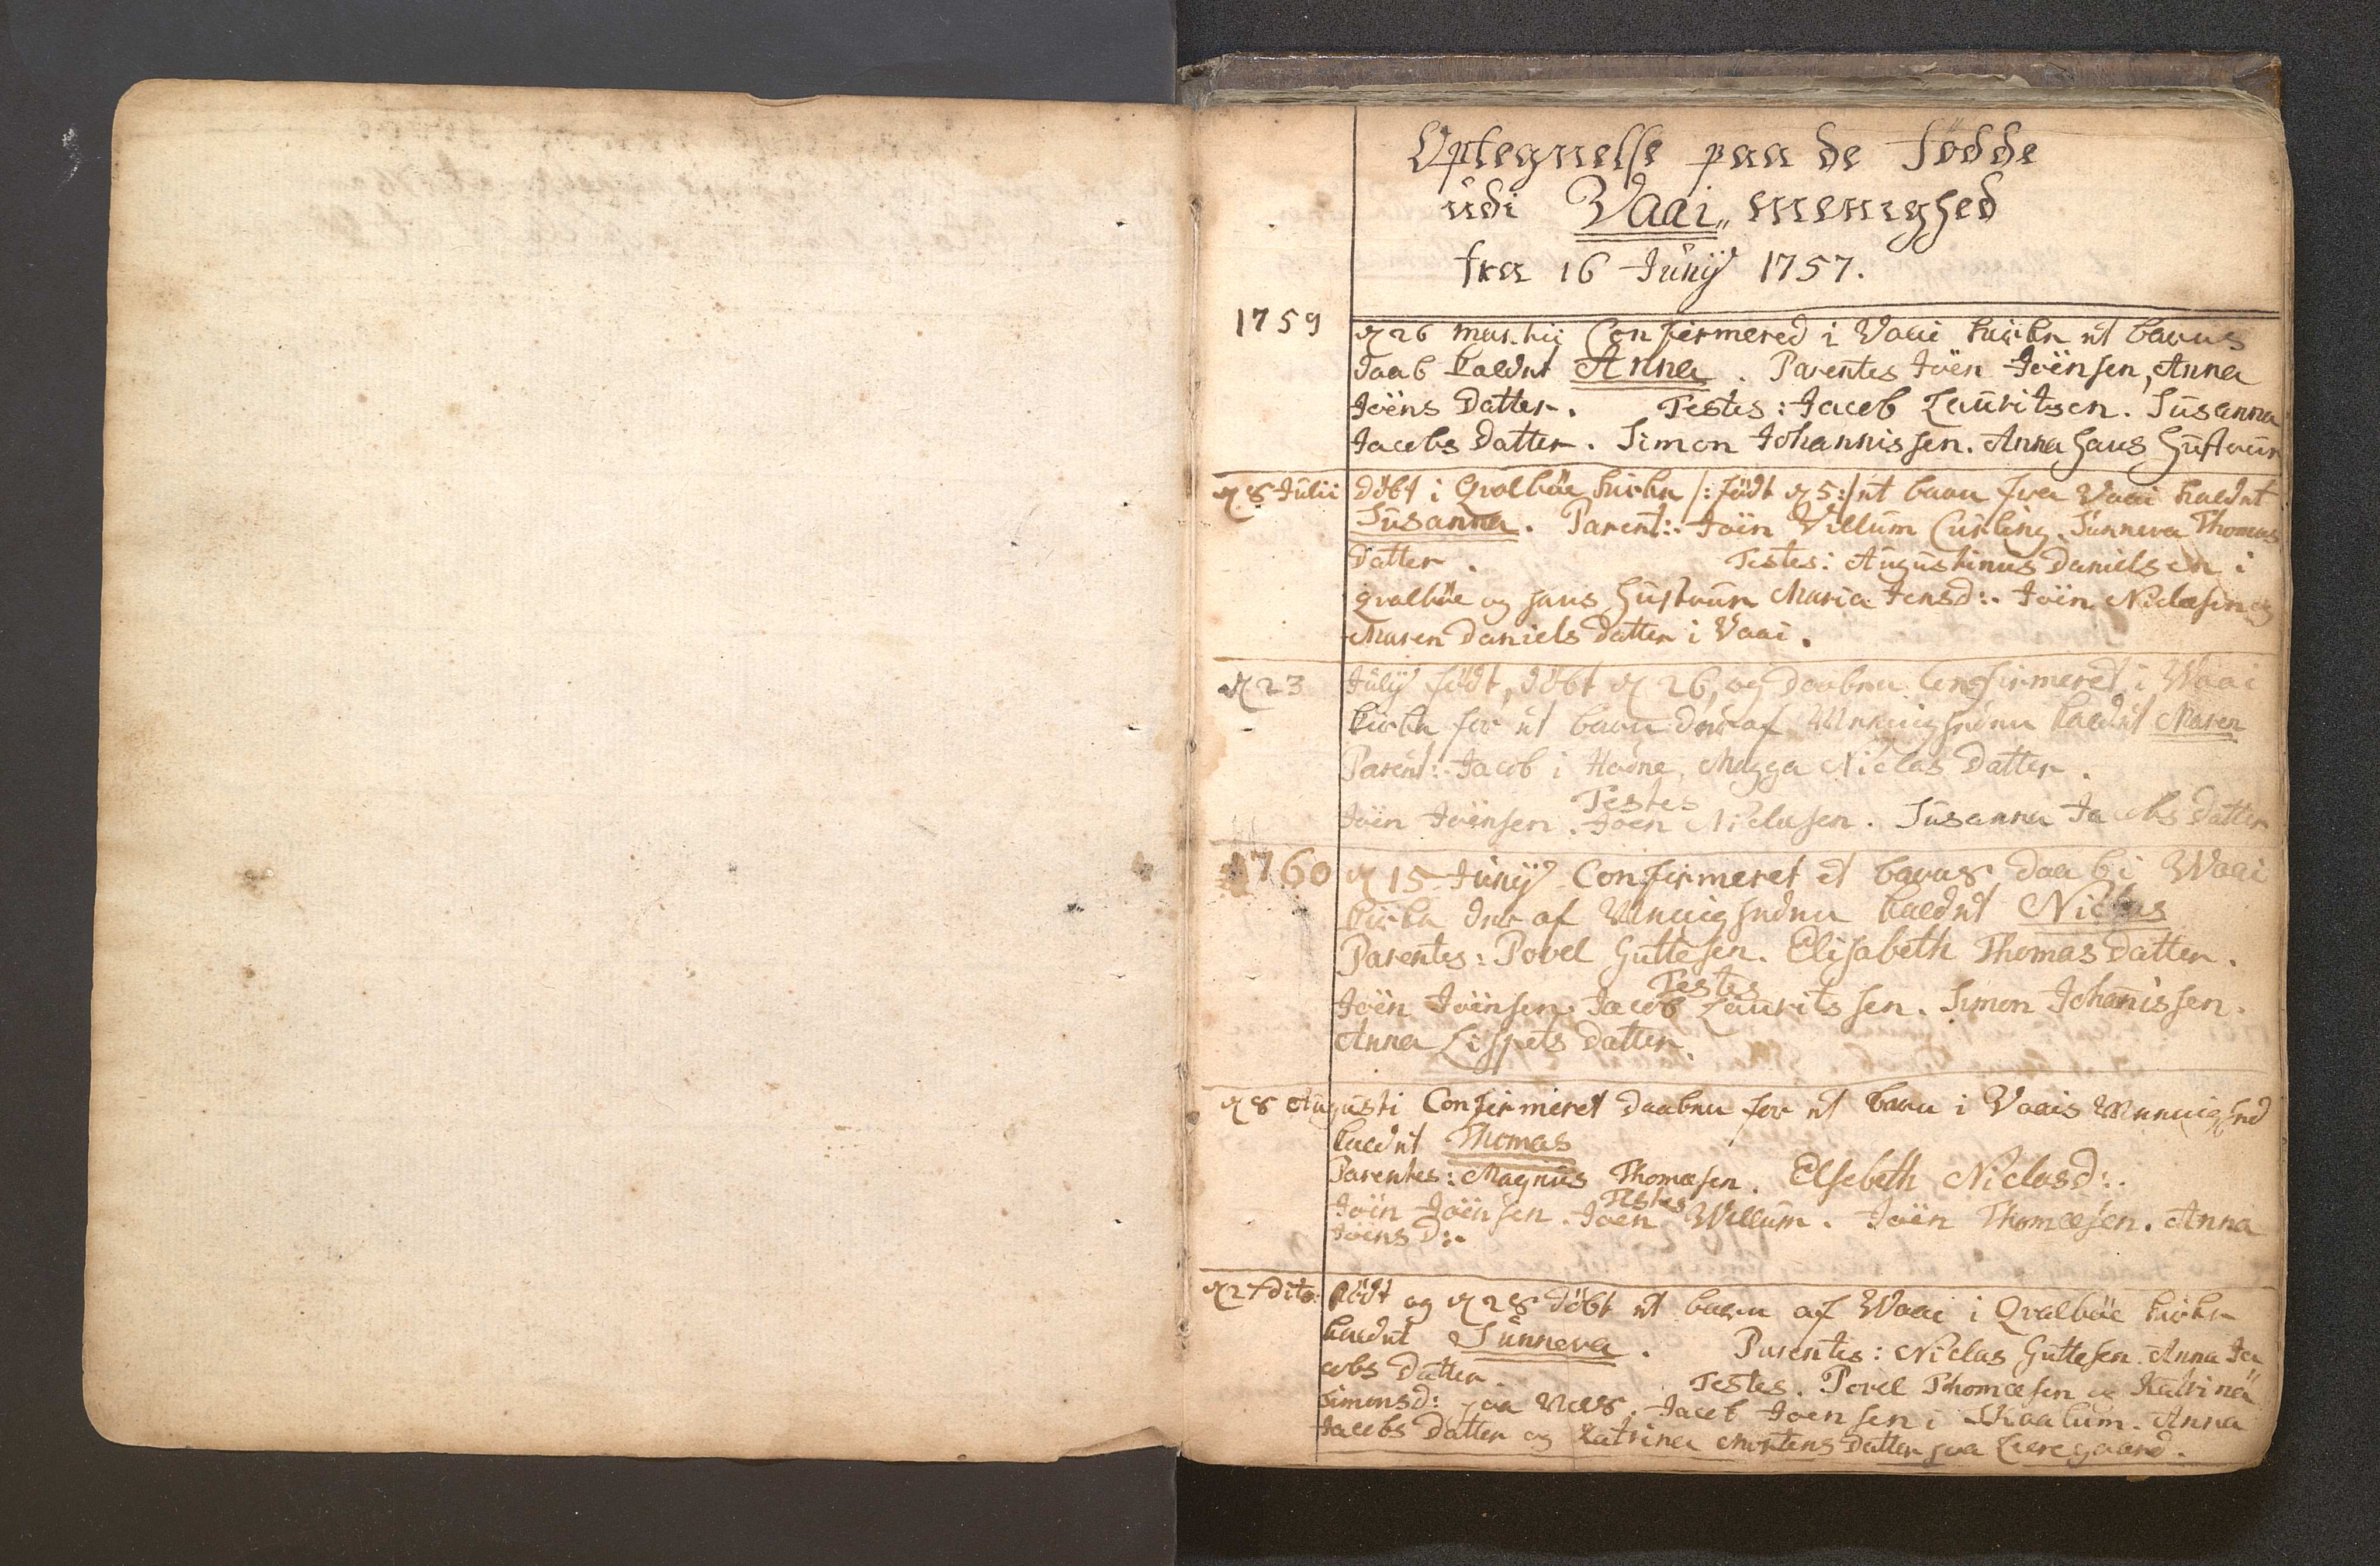 Optegnelse paa de Fødde
udi Vaai menighed
fra 16 Junij 1757.
1759
d 26 martii Confirmered i Vaai kirke et barns
daab kaldet Anna. Parentes Joën Joënsen, Anna
Joëns Datter. Testes: Jacob Lauritsen. Susanna
Jacobs Datter. Simon Johannissen. Anna hans Hustrue
d 8 Julii døbt i Qvalbøe kirke /: født d 5:/ et barn fra Vaai kaldet
Susanna. Parent: Joën Villum Curling. Sunneva Thomas
Datter. Testes: Augustinus Danielsen i
Qvalbøe og hans Hustrue Maria Jensd: Joën Niclæsen og
Maren Daniels Datter i Vaai.
d 23 Julij født, døbt d 26, og Daaben Confirmeret i Waai
kirke for et barn der af Menigheden kaldet Maren
Parent: Jacob i Høvne, Magga Niclas Datter.
Testes
Joën Joënsen. Joen Niclasen. Susanna Jacobs Datter
1760 d 15 Junij Confirmeret et barns daab i Waai
kirke der af Menigheden kaldet Niclas
Parentes: Povel Guttesen. Elisabeth Thomas Datter.
Testes
Joën Joënsen. Jacob Lauritssen. Simon Johanissen.
Anna Lispets Datter.
d 8 Augusti Confirmeret Daaben for et barn i Vaais Menighed
kaldet Thomas
Parentes: Magnus Thomæsen. Elsebeth Niclasd:
Testes
Joën Joënsen. Joen Willum. Joën Thomæsen. Anna
Joëns D:
d 27 dito: født og d 28 døbt et barn af Waai i Qvalbøe kirke
kaldet Sunneva. Parentes: Niclas Guttesen. Anna Ja
cobs Datter. Testes. Povel Thomæsen og Katrina
Simonsd: paa Næs. Jacob Joensen i Skaalum. Anna
Jacobs Datter og Katrina Mortens Datter fra Leeregaard.